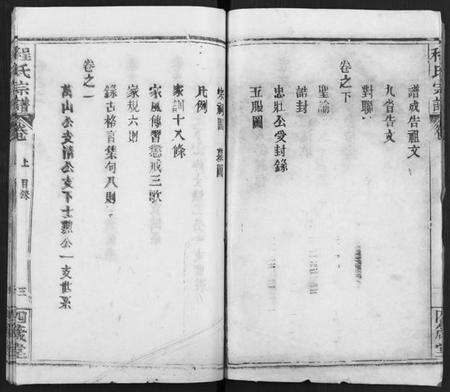 程氏宗譜
卷
譜成告祖文
九首告文
對聯
卷之下
聖諭
誥封
忠壯公受封錄
五服圖
祠圖 墓圖
凡例
家訓十八條
家風傳習懲戒三歌
家規六則
錄古格言集句八則
卷之一
萬山公支
公一支世系
程氏宗譜
卷
上 目錄
三
四箴堂
四箴堂